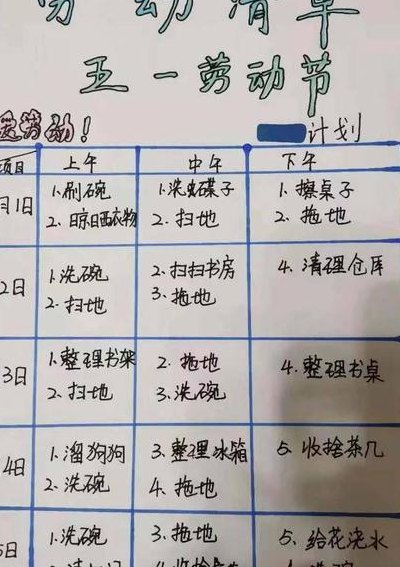 劳动清单
五一劳动节
爱劳动!
计划
项目 上午 中午 下午
月1日 1.刷碗 1.洗蝶子 1.擦桌子
2.晾晒衣物 2.扫地 2.拖地
2日 1.洗碗 2.扫扫书房 4.清理仓库
2.扫地 3.拖地
3日 1.整理书架 2.拖地 4.整理书桌
2.扫地 3.洗碗
4日 1.溜狗狗 3.整理冰箱 5.收捨茶几
2.洗碗 4.拖地
5日 1.洗碗 3.拖地 5.给花浇水